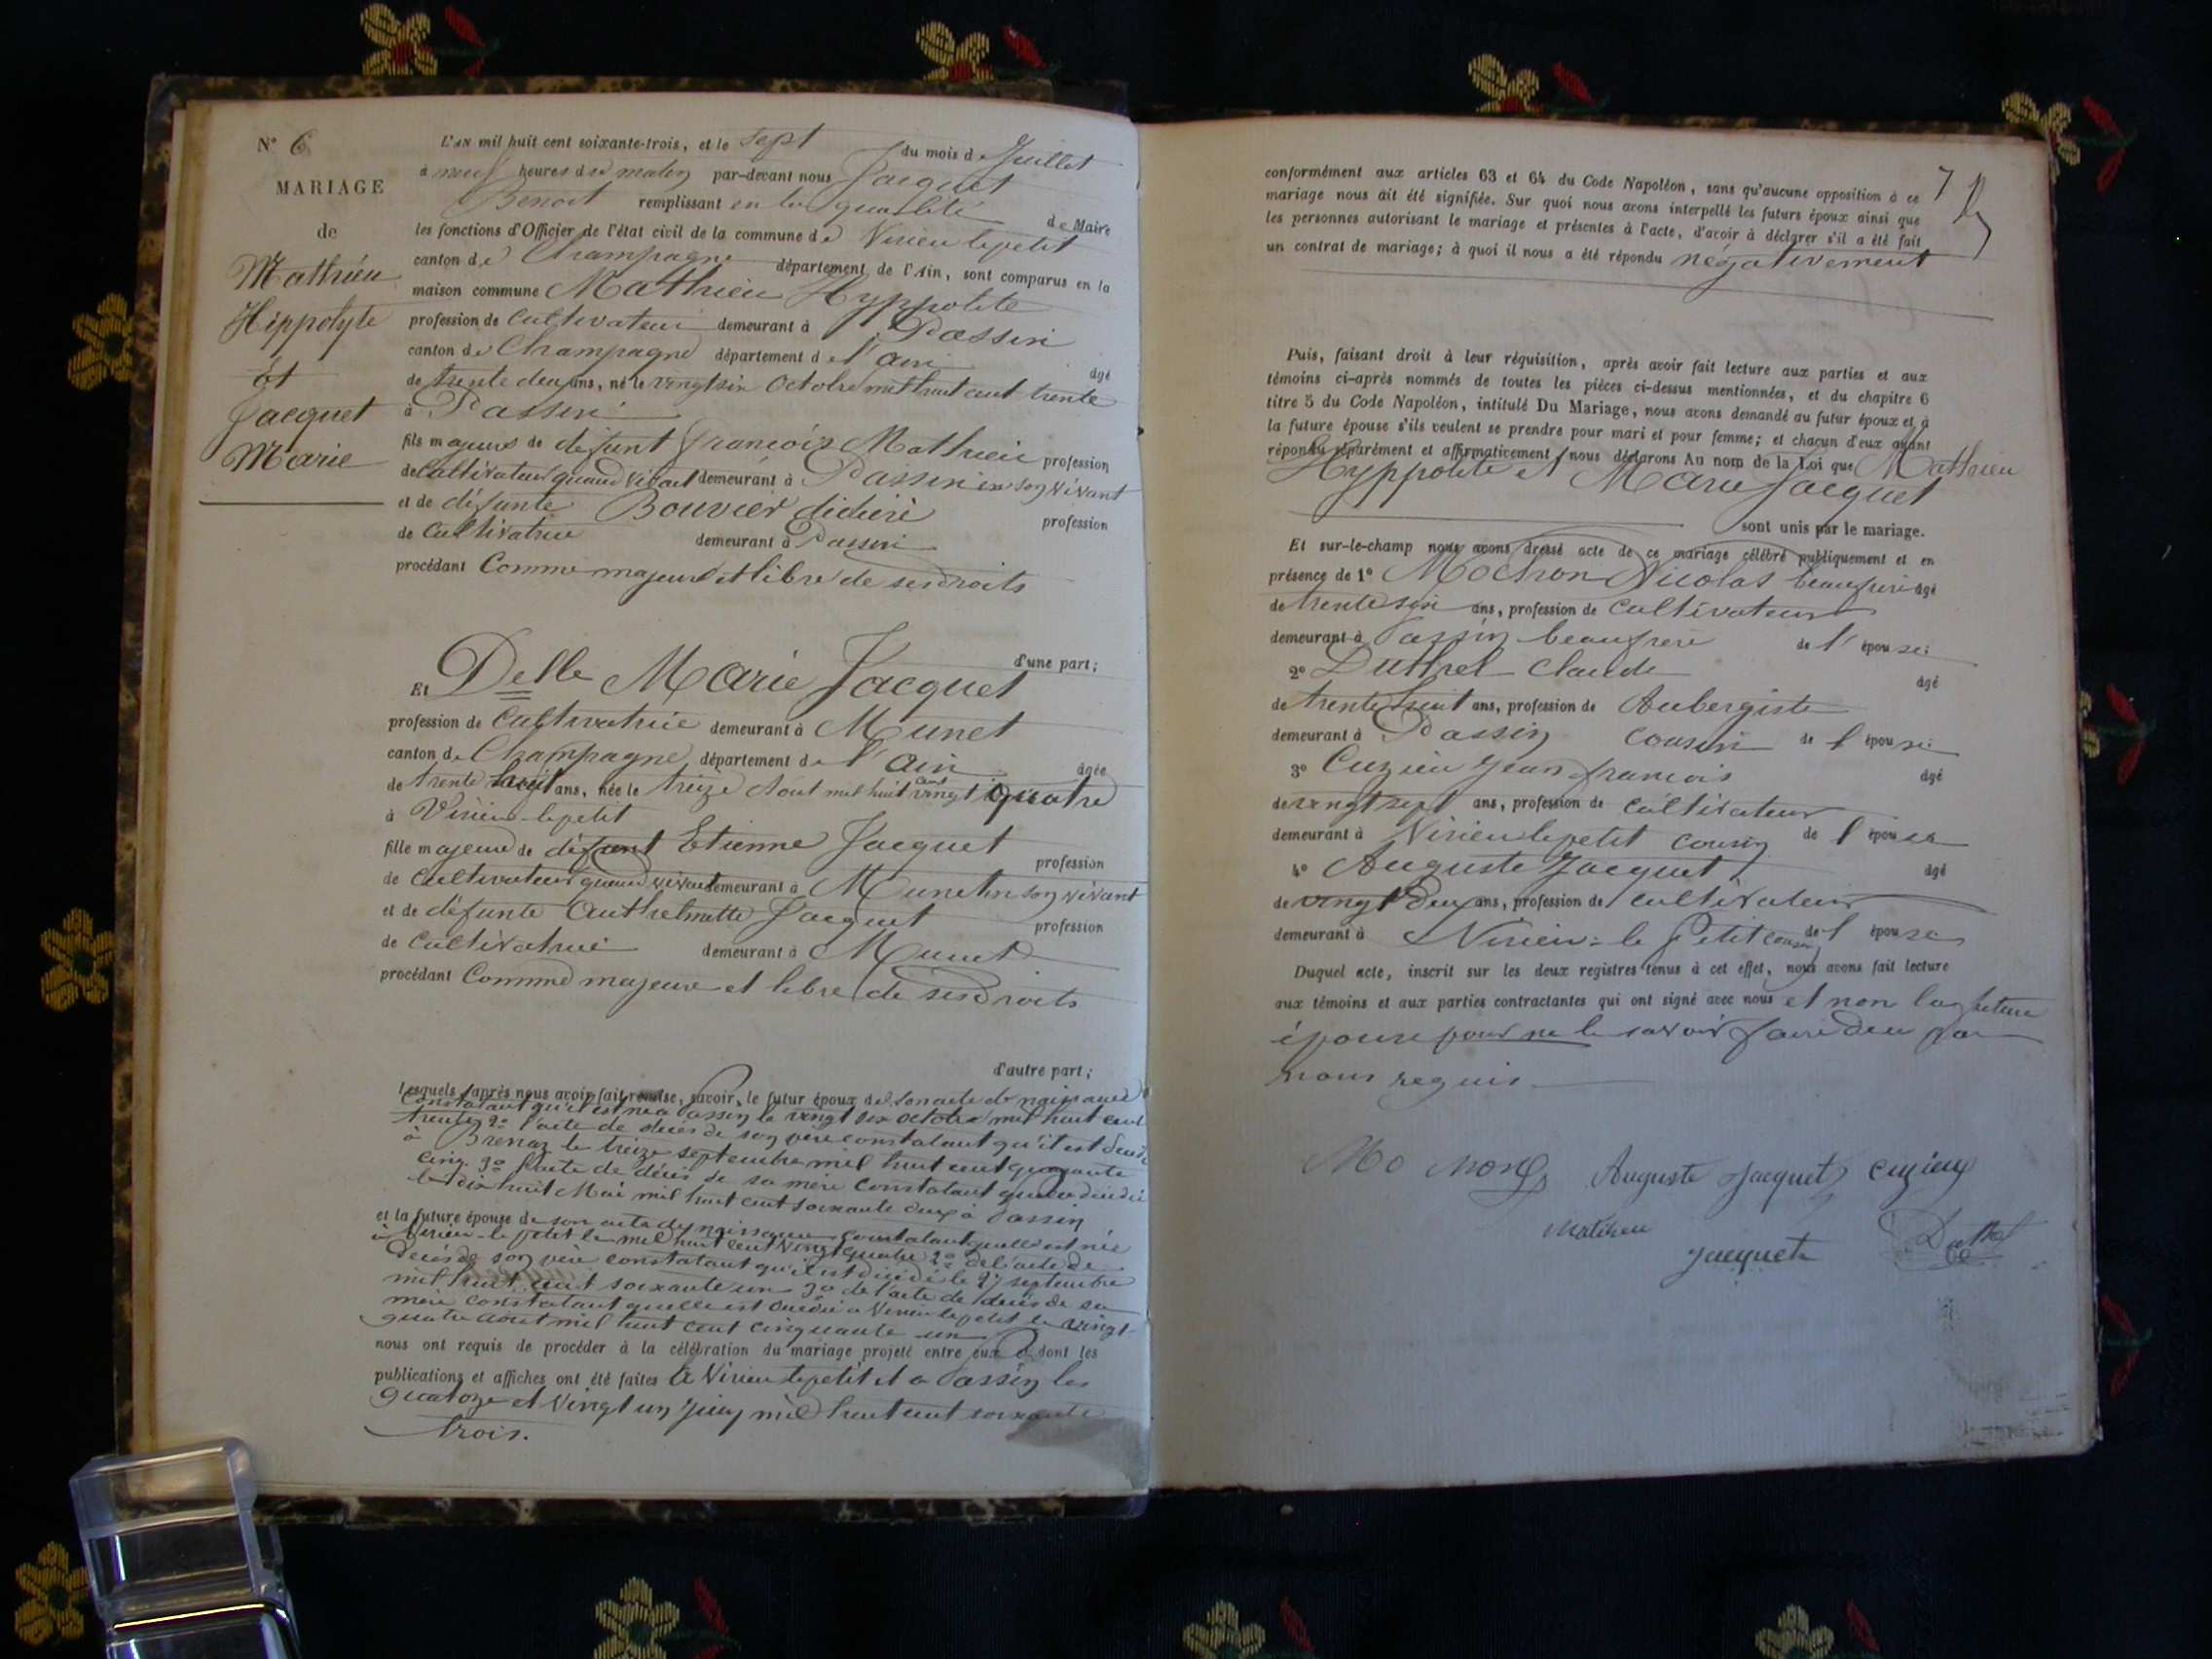 N° 6
MARIAGE
de
Mathieu
Hippolyte
Et
Jacquet
Marie
L'AN mil huit cent soixante-trois, et le sept du mois de Juillet
à neuf heures du matin par-devant nous Jacquet
Benoit remplissant en la qualité de Maire
les fonctions d'Officier de l'état civil de la commune de Virieu le petit
canton de Champagne département de l'Ain, sont comparus en la
maison commune Mathieu Hyppolite
profession de Cultivateur demeurant à Passin
canton de Champagne département de l'ain âgé
de trente deux ans, né le vingt six Octobre mil huit cent trente
à Passin
fils majeur de défunt françois Mathieu profession
de Cultivateur quand vivait demeurant à Passin en son vivant
et de défunte Bouvier didière profession
de Cultivatrice demeurant à Passin
procédant Comme majeur et libre de ses droits
d'une part;
Et Delle Marie Jacquet
profession de Cultivatrice demeurant à Munet
canton de Champagne département de l'ain âgée
de trente huit ans, née le treize Aout mil huit cent vingt quatre
à Virieu le petit
fille majeure de défunt Etienne Jacquet profession
de Cultivateur quand vivait demeurant à Munet en son vivant
et de défunte Anthelmette Jacquet profession
de Cultivatrice demeurant à Munet
procédant Comme majeure et libre de ses droits
d'autre part;
Lesquels, après nous avoir fait remise, savoir, le futur époux de son acte de naissance
constatant qu'il est né à Passin le vingt six octobre mil huit cent
trente 2° l'acte de décès de son père constatant qu'il est décédé
à Brenaz le treize septembre mil huit cent quarante
cinq. 3° l'acte de décès de sa mère constatant qu'elle décédée
le dix huit Mai mil huit cent soixante deux à Passin
et la future épouse de son acte de naissance constatant quelle est née
à Virieu le petit le mil huit cent vingt quatre 2° de l'acte de
décès de son père constatant qu'il est décédé le 27 septembre
mil huit cent soixante un 3° de l'acte de décès de sa
mère constatant quelle est décédée à Virieu le petit le vingt
quatre aout mil huit cent cinquante un
nous ont requis de procéder à la célébration du mariage projeté entre eux et dont les
publications et affiches ont été faites à Virieu le petit et à Passin les
quatorze et vingt un Juin mil huit cent soixante
trois.
7
conformément aux articles 63 et 64 du Code Napoléon, sans qu'aucune opposition à ce
mariage nous ait été signifiée. Sur quoi nous avons interpellé les futurs époux ainsi que
les personnes autorisant le mariage et présentes à l'acte, d'avoir à déclarer s'il a été fait
un contrat de mariage; à quoi il nous a été répondu négativement
Puis, faisant droit à leur réquisition, après avoir fait lecture aux parties et aux
témoins ci-après nommés de toutes les pièces ci-dessus mentionnées, et du chapitre 6
titre 5 du Code Napoléon, intitulé Du Mariage, nous avons demandé au futur époux et à
la future épouse s'ils veulent se prendre pour mari et pour femme; et chacun d'eux ayant
répondu séparément et affirmativement, nous déclarons Au nom de la Loi que Mathieu
Hyppolite et Marie Jacquet
sont unis par le mariage.
Et sur-le-champ nous avons dressé acte de ce mariage célébré publiquement et en
présence de 1° Mochon Nicolas beaufrère âgé
de trente six ans, profession de Cultivateur
demeurant à Passin beaufrere de l'épouse
2° Duthel Claude âgé
de trente huit ans, profession de Aubergiste
demeurant à Passin cousin de l'épouse
3° Cuzieu Jean françois âgé
de vingt sept ans, profession de cultivateur
demeurant à Virieu le petit cousin de l'épouse
4° Auguste Jacquet âgé
de vingt deux ans, profession de cultivateur
demeurant à Virieu le Petit cousin de l'épouse
Duquel acte, inscrit sur les deux registres tenus à cet effet, nous avons fait lecture
aux témoins et aux parties contractantes qui ont signé avec nous et non la future
épouse pour ne le savoir faire de ce par
nous requis
Auguste Jacquet Cuzieu
Mathieu
Jacquet Duthel